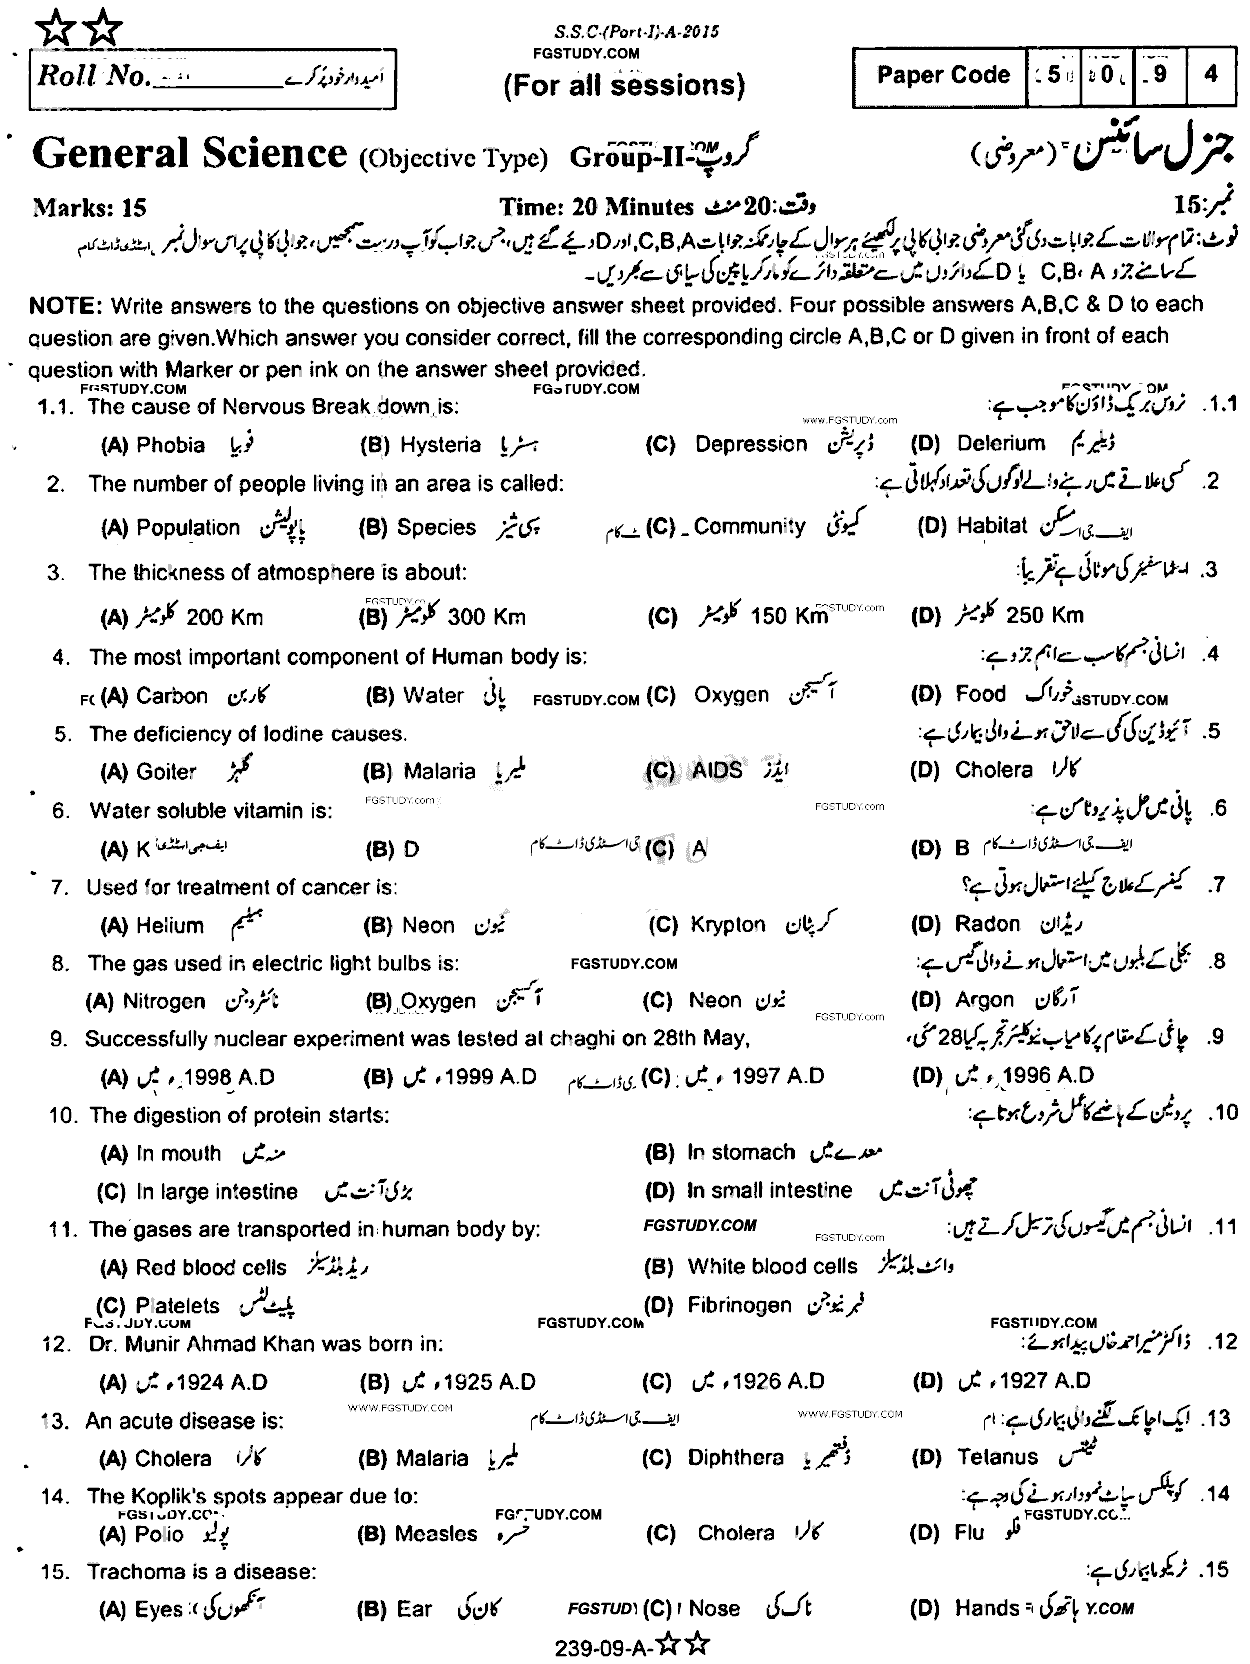 S.S.C-(Part-I)-A-2015
FGSTUDY.COM
Roll No. امیدوار خود پُر کرے
(For all sessions)
Paper Code 5 0 9 4
General Science (Objective Type) Group-II-گروپ جنرل سائنس (معروضی)
Marks: 15 Time: 20 Minutes وقت:20 منٹ نمبر:15
نوٹ: تمام سوالات کے جوابات دی گئی معروضی جوابی کاپی پر لکھیئے ہر سوال کے چار ممکنہ جوابات C,B,A, اور D دیئے گئے ہیں، جس جواب کو آپ درست سمجھیں، جوابی کاپی پر اس سوال نمبر
کے سامنے جزو C,B، A یا D کے دائروں میں سے متعلقہ دائرے کو مارکر یا پین کی سیاہی سے بھر دیں۔
NOTE: Write answers to the questions on objective answer sheet provided. Four possible answers A,B,C & D to each
question are given.Which answer you consider correct, fill the corresponding circle A,B,C or D given in front of each
question with Marker or pen ink on the answer sheet provided.
FGSTUDY.COM FGSTUDY.COM FGSTUDY.COM
1.1. The cause of Nervous Break down is: 1.1. نروس بریک ڈاؤن کا موجب ہے:
www.FGSTUDY.com
(A) Phobia فوبیا (B) Hysteria ہسٹریا (C) Depression ڈپریشن (D) Delerium ڈیلیریم
2. The number of people living in an area is called: 2. کسی علاقے میں رہنے والے لوگوں کی تعداد کہلاتی ہے:
(A) Population پاپولیشن (B) Species سپی شیز (C) Community کمیونٹی (D) Habitat مسکن
3. The thickness of atmosphere is about: 3. ایٹماسفیئر کی موٹائی ہے تقریباً:
(A) کلومیٹر 200 Km (B) کلومیٹر 300 Km (C) کلومیٹر 150 Km (D) کلومیٹر 250 Km
4. The most important component of Human body is: 4. انسانی جسم کا سب سے اہم جزو ہے:
(A) Carbon کاربن (B) Water پانی FGSTUDY.COM (C) Oxygen آکسیجن (D) Food خوراک
5. The deficiency of Iodine causes. 5. آئیوڈین کی کمی سے لاحق ہونے والی بیماری ہے:
(A) Goiter گلہڑ (B) Malaria ملیریا (C) AIDS ایڈز (D) Cholera کالرا
FGSTUDY.com FGSTUDY.com
6. Water soluble vitamin is: 6. پانی میں حل پذیر وٹامن ہے:
(A) K ایف جی اسٹڈی (B) D جی اسٹڈی ڈاٹ کام (C) A (D) B ایف جی اسٹڈی ڈاٹ کام
7. Used for treatment of cancer is: 7. کینسر کے علاج کیلئے استعمال ہوتی ہے؟
(A) Helium ہیلیم (B) Neon نیون (C) Krypton کرپٹان (D) Radon ریڈان
8. The gas used in electric light bulbs is: FGSTUDY.COM 8. بجلی کے بلبوں میں استعمال ہونے والی گیس ہے:
(A) Nitrogen نائٹروجن (B) Oxygen آکسیجن (C) Neon نیون (D) Argon آرگان
FGSTUDY.com
9. Successfully nuclear experiment was tested at chaghi on 28th May, 9. چاغی کے مقام پر کامیاب نیوکلیئر تجربہ کیا 28 مئی،
(A) ء میں 1998 A.D (B) ء میں 1999 A.D (C) ء میں 1997 A.D (D) ء میں 1996 A.D
10. The digestion of protein starts: 10. پروٹین کے ہاضمے کا عمل شروع ہوتا ہے:
(A) In mouth منہ میں (B) In stomach معدے میں
(C) In large intestine بڑی آنت میں (D) In small intestine چھوٹی آنت میں
11. The gases are transported in human body by: FGSTUDY.COM FGSTUDY.com 11. انسانی جسم میں گیسوں کی ترسیل کرتے ہیں:
(A) Red blood cells ریڈ بلڈ سیلز (B) White blood cells وائٹ بلڈ سیلز
(C) Platelets پلیٹ لٹس (D) Fibrinogen فبرینوجن
FGSTUDY.COM FGSTUDY.COM FGSTUDY.COM
12. Dr. Munir Ahmad Khan was born in: 12. ڈاکٹر منیر احمد خاں پیدا ہوئے:
(A) ء میں 1924 A.D (B) ء میں 1925 A.D (C) ء میں 1926 A.D (D) ء میں 1927 A.D
WWW.FGSTUDY.COM WWW.FGSTUDY.COM
13. An acute disease is: ایف جی اسٹڈی ڈاٹ کام 13. ایک اچانک لگنے والی بیماری ہے:
(A) Cholera کالرا (B) Malaria ملیریا (C) Diphthera ڈفتھیریا (D) Telanus ٹیٹنس
14. The Koplik's spots appear due to: 14. کوپلکس سپاٹ نمودار ہونے کی وجہ ہے:
FGSTUDY.COM
(A) Polio پولیو (B) Measles خسرہ (C) Cholera کالرا (D) Flu فلو
15. Trachoma is a disease: 15. ٹریکوما بیماری ہے:
(A) Eyes آنکھوں کی (B) Ear کان کی (C) Nose ناک کی (D) Hands ہاتھ کی
239-09-A-☆☆